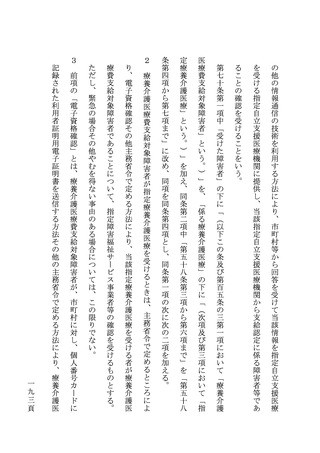 の他の情報通信の技術を利用する方法により、市町村等から回答を受けて当該情報を指定自立支援医療機関に提供し、当該指定自立支援医療機関から支給認定に係る障害者等であ
ることの確認を受けることをいう。
第七十条第一項中「受けた障害者」の下に「（以下この条及び第百五条の三第一項において「療養介護
医療費支給対象障害者」という。）」を、「係る療養介護医療」の下に「（次項及び第三項において「指
定療養介護医療」という。）」を加え、同条第二項中「第五十八条第三項から第六項まで」を「第五十八
条第四項から第七項まで」に改め、同項を同条第四項とし、同条第一項の次に次の二項を加える。
２　療養介護医療費支給対象障害者が指定療養介護医療を受けるときは、主務省令で定めるところによ
り、電子資格確認その他主務省令で定める方法により、当該指定療養介護医療を受ける者が療養介護医
療費支給対象障害者であることについて、指定障害福祉サービス事業者等の確認を受けるものとする。
ただし、緊急の場合その他やむを得ない事由のある場合については、この限りでない。
３　前項の「電子資格確認」とは、療養介護医療費支給対象障害者が、市町村に対し、個人番号カードに
記録された利用者証明用電子証明書を送信する方法その他の主務省令で定める方法により、療養介護医
一九三頁